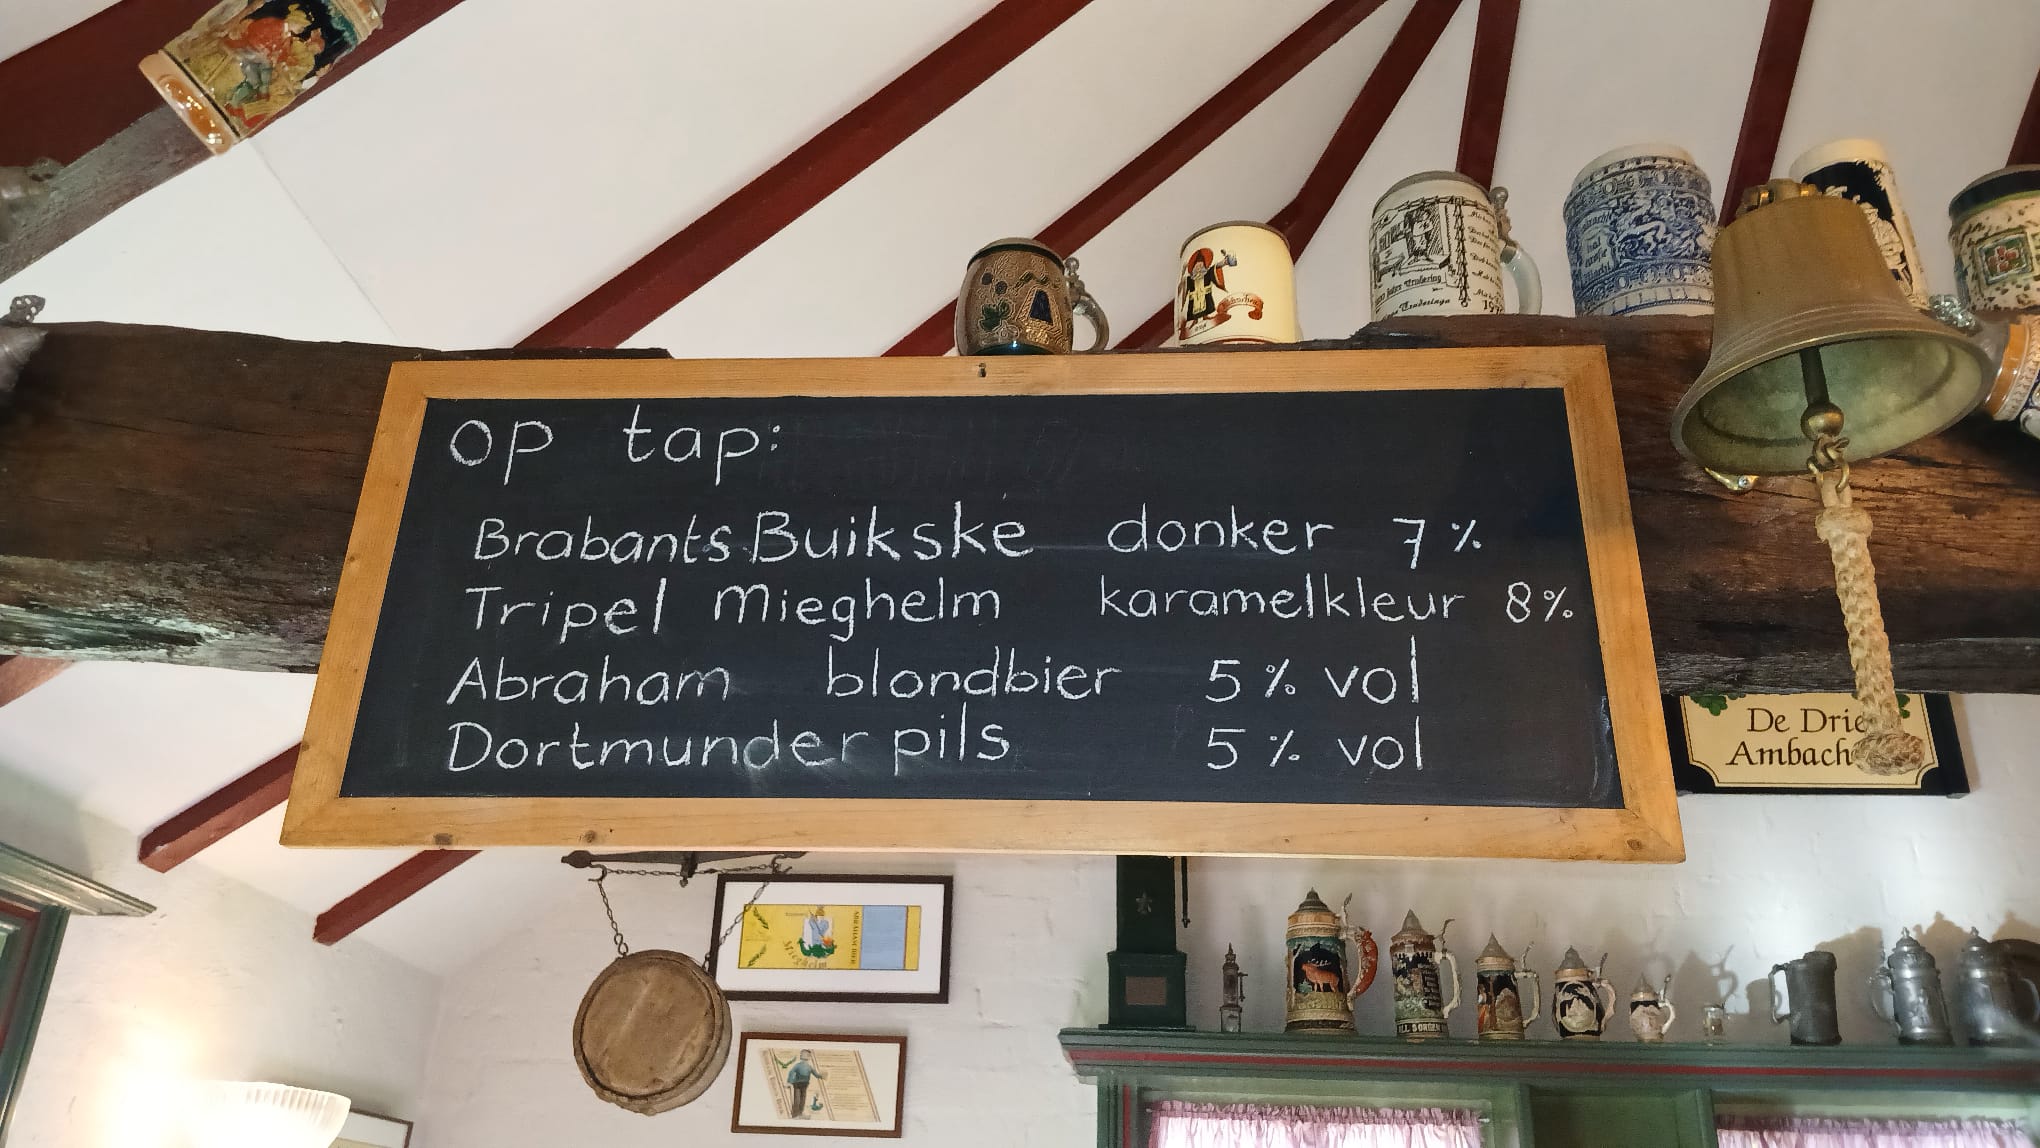 op tap:
Brabants Buikske donker 7%
Tripel Mieghelm karamelkleur 8%
Abraham blondbier 5% vol
Dortmunder pils 5% vol
De Drie
Ambach
Mieghelm
ABRAHAM BIER